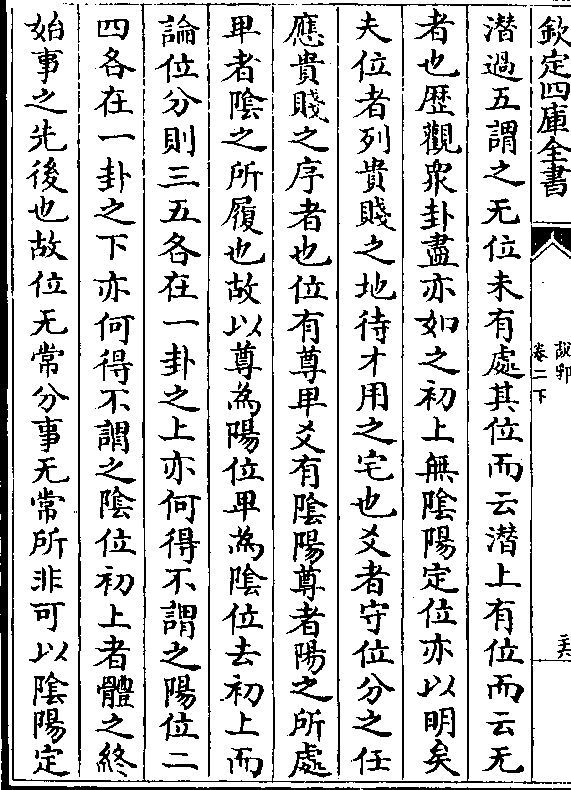 欽定四庫全書
説郛
卷二下
三六
潜過五謂之无位未有處其位而云潜上有位而云无
者也歴觀衆卦盡亦如之初上無陰陽定位亦以明矣
夫位者列貴賤之地待才用之宅也爻者守位分之任
應貴賤之序者也位有尊卑爻有陰陽尊者陽之所處
卑者陰之所履也故以尊為陽位卑為陰位去初上而
論位分則三五各在一卦之上亦何得不謂之陽位二
四各在一卦之下亦何得不謂之陰位初上者體之終
始事之先後也故位无常分事无常所非可以陰陽定